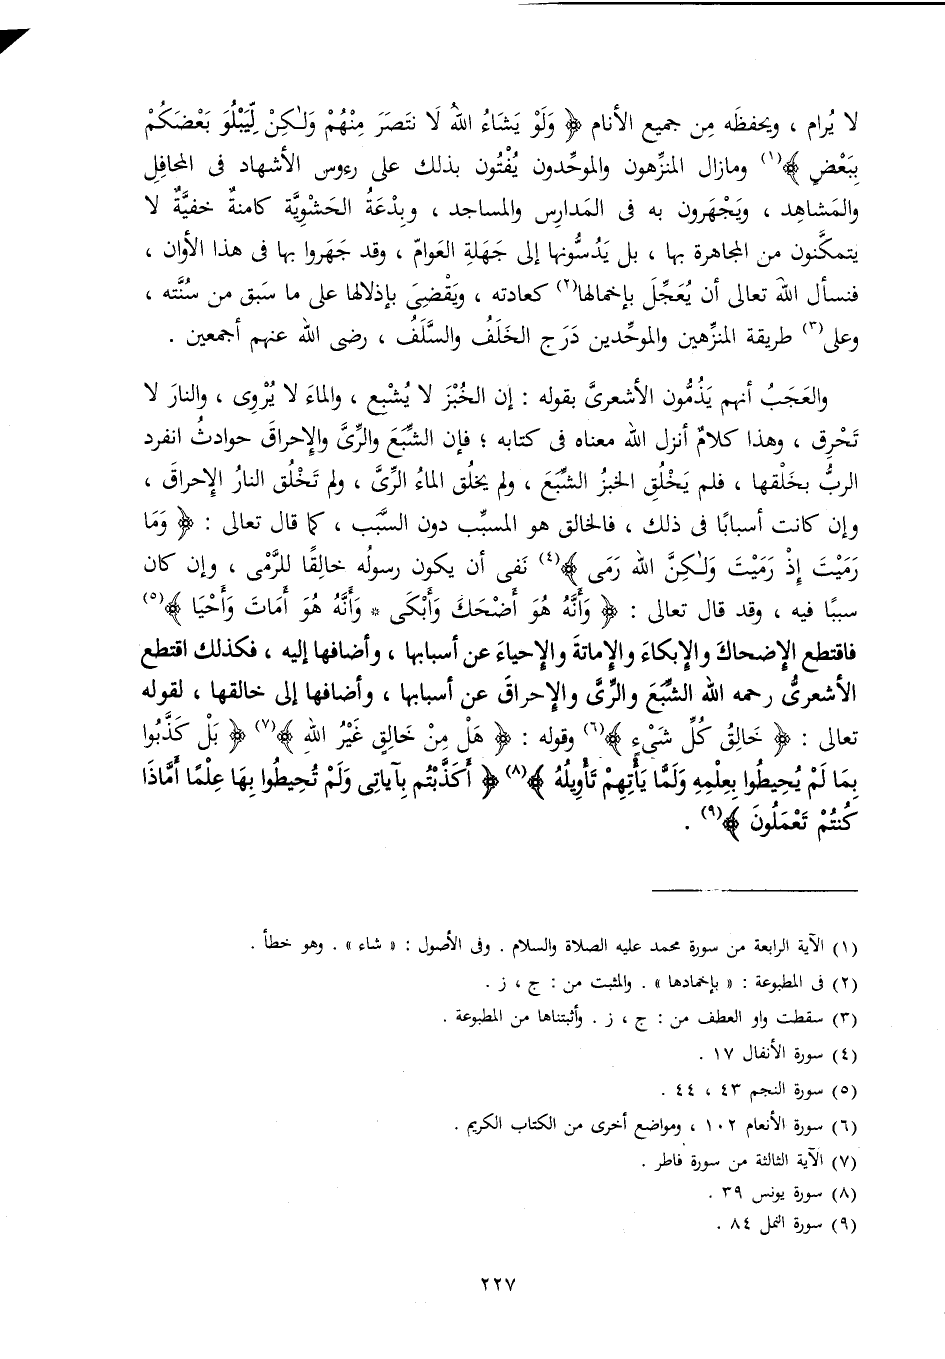 لا يُرام ، ويحفظَه مِن جميع الأنام ﴿ وَلَوْ يَشَاءُ اللهُ لَا نتَصَرَ مِنْهُمْ وَلَٰكِنْ لِّيَبْلُوَ بَعْضَكُمْ
بِبَعْضٍ ﴾(١) ومازال المنزِّهون والموحِّدون يُفْتُون بذلك على رءوس الأشهاد فى المحافِلِ
والمَشاهِد ، ويَجْهَرون به فى المَدارِس والمساجد ، وبِدْعَةُ الحَشْوِيَّة كامنةٌ خفيَّةٌ لا
يتمكَّنون من المجاهرة بها ، بل يَدُسُّونها إلى جَهَلةِ العَوامّ ، وقد جَهَروا بها فى هذا الأوان ،
فنسأل اللهَ تعالى أن يُعَجِّلَ بإخمالها(٢) كعادته ، ويَقْضِىَ بإذلالها على ما سَبق من سُنَّته ،
وعلى(٣) طريقة المنزِّهين والموحِّدين دَرَج الخَلَفُ والسَّلَفُ ، رضى الله عنهم أجمعين .
والعَجَبُ أنهم يَذُمُّون الأشعرىَّ بقوله : إن الخُبْزَ لا يُشْبِع ، والماءَ لا يُرْوِى ، والنارَ لا
تَحْرِق ، وهذا كلامٌ أنزل اللهُ معناه فى كتابه ؛ فإن الشِّبَعَ والرِّىَّ والإحراقَ حوادثُ انفرد
الربُّ بخَلْقها ، فلم يَخْلُقِ الخبزُ الشِّبَعَ ، ولم يخلُق الماءُ الرِّىَّ ، ولم تَخْلُق النارُ الإحراقَ ،
وإن كانت أسبابًا فى ذلك ، فالخالق هو المسبِّب دون السَّبَب ، كما قال تعالى : ﴿ وَمَا
رَمَيْتَ إِذْ رَمَيْتَ وَلَٰكِنَّ اللهَ رَمَى ﴾(٤) نَفى أن يكون رسولُه خالِقًا للرَّمْى ، وإن كان
سببًا فيه ، وقد قال تعالى : ﴿ وَأَنَّهُ هُوَ أَضْحَكَ وَأَبْكَى * وَأَنَّهُ هُوَ أَمَاتَ وَأَحْيَا ﴾(٥)
فاقتطع الإضحاكَ والإبكاءَ والإماتةَ والإحياءَ عن أسبابها ، وأضافها إليه ، فكذلك اقتطع
الأشعرىُّ رحمه الله الشِّبَعَ والرِّىَّ والإحراقَ عن أسبابها ، وأضافها إلى خالقها ، لقوله
تعالى : ﴿ خَالِقُ كُلِّ شَىْءٍ ﴾(٦) وقوله : ﴿ هَلْ مِنْ خَالِقٍ غَيْرُ اللهِ ﴾(٧) ﴿ بَلْ كَذَّبُوا
بِمَا لَمْ يُحِيطُوا بِعِلْمِهِ وَلَمَّا يَأْتِهِمْ تَأْوِيلُهُ ﴾(٨) ﴿ أَكَذَّبْتُم بِآيَاتِى وَلَمْ تُحِيطُوا بِهَا عِلْمًا أَمَّاذَا
كُنتُمْ تَعْمَلُونَ ﴾(٩) .
(١) الآية الرابعة من سورة محمد عليه الصلاة والسلام . وفى الأصول : « شاء » . وهو خطأ .
(٢) فى المطبوعة : « بإخمادها » . والمثبت من : ج ، ز .
(٣) سقطت واو العطف من : ج ، ز . وأثبتناها من المطبوعة .
(٤) سورة الأنفال ١٧ .
(٥) سورة النجم ٤٣ ، ٤٤ .
(٦) سورة الأنعام ١٠٢ ، ومواضع أخرى من الكتاب الكريم .
(٧) الآية الثالثة من سورة فاطر .
(٨) سورة يونس ٣٩ .
(٩) سورة النمل ٨٤ .
٢٢٧